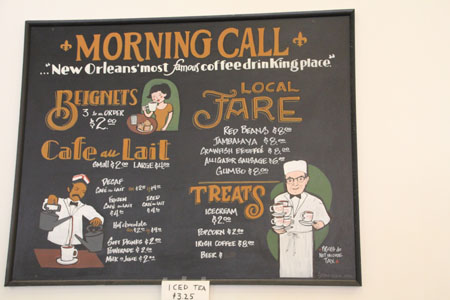 MORNING CALL
..."New Orleans' most famous coffee drinking place."
BEIGNETS
3 to an ORDER
$2.00
Cafe au Lait
SMALL $2.00 LARGE $4.00
DECAF
Cafe au Lait
FROZEN
Cafe au Lait
$4.00
ICED
Cafe au Lait
$4.00
Hot chocolate
SOFT DRINKS $2.00
LEMONADE $2.00
MILK or JUICE $2.00
LOCAL
FARE
RED BEANS $8.00
JAMBALAYA $8.00
CRAWFISH ETOUFFEE $8.00
ALLIGATOR SAUSAGE $6.00
GUMBO $8.00
TREATS
ICECREAM
$2.00
POPCORN $2.00
IRISH COFFEE $8.00
BEER
PRICES DO
NOT INCLUDE
TAX
ICED TEA
$3.25